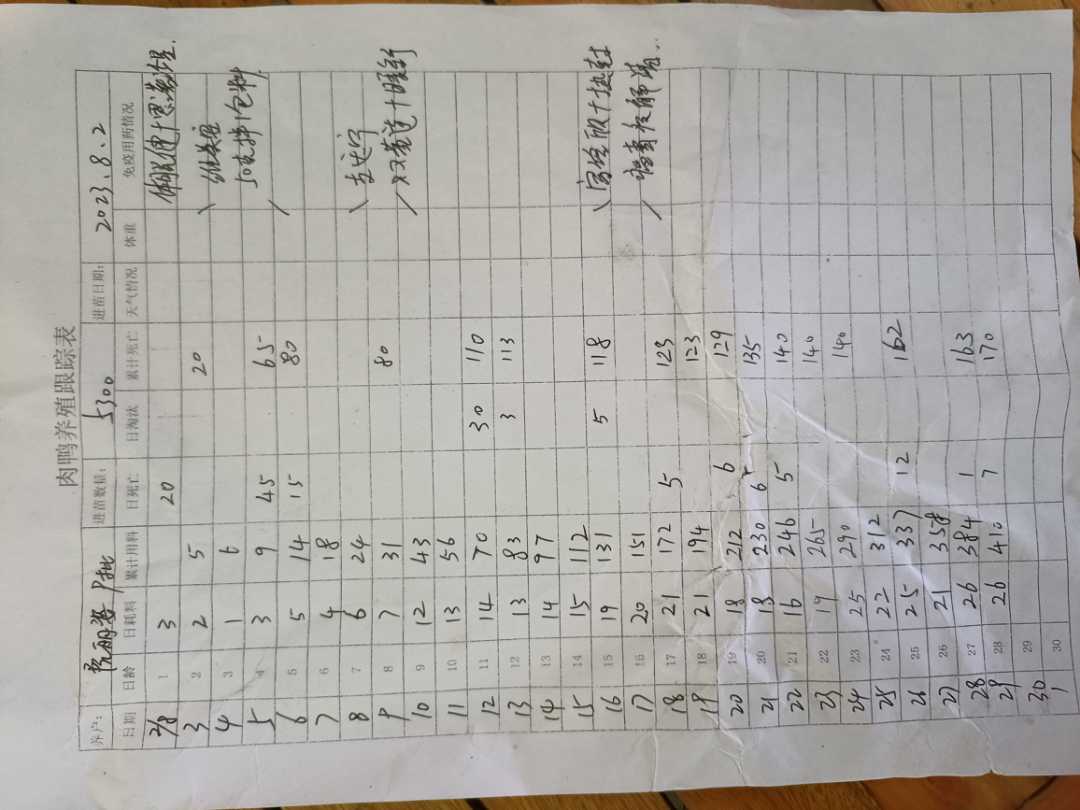 肉鸭养殖跟踪表
养户: 9批 进苗数量: 5300 进苗日期: 2023.8.2
日期 日龄 日耗料 累计用料 日死亡 日淘汰 累计死亡 天气情况 体重 免疫用药情况
2/8 1 3 20
3 2 2 5 20
4 3 1 6
5 4 3 9 45 65
6 5 5 14 15 80 50 1包料
7 6 4 18
8 7 6 24
9 8 7 31 80
10 9 12 43
11 10 13 56
12 11 14 70 30 110
13 12 13 83 3 113
14 13 14 97
15 14 15 112
16 15 19 131 5 118
17 16 20 151
18 17 21 172 5 123
19 18 21 194 123
20 19 18 212 6 129
21 20 18 230 6 135
22 21 16 246 5 140
23 22 19 265 140
24 23 25 290 140
25 24 22 312
26 25 25 337 12 162
27 26 21 358
28 27 26 384 1 163
29 28 26 410 7 170
30 29
1 30